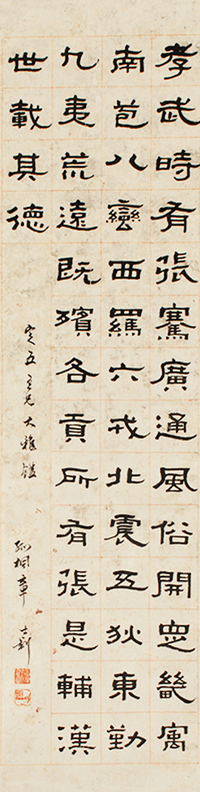 孝武時有張騫廣通風俗開定畿寓
南苞八蠻西羅六戎北震五狄東勤
九夷荒遠既殯各貢所有張是輔漢
世載其德
定五兄大雅鑑
孤桐章士釗